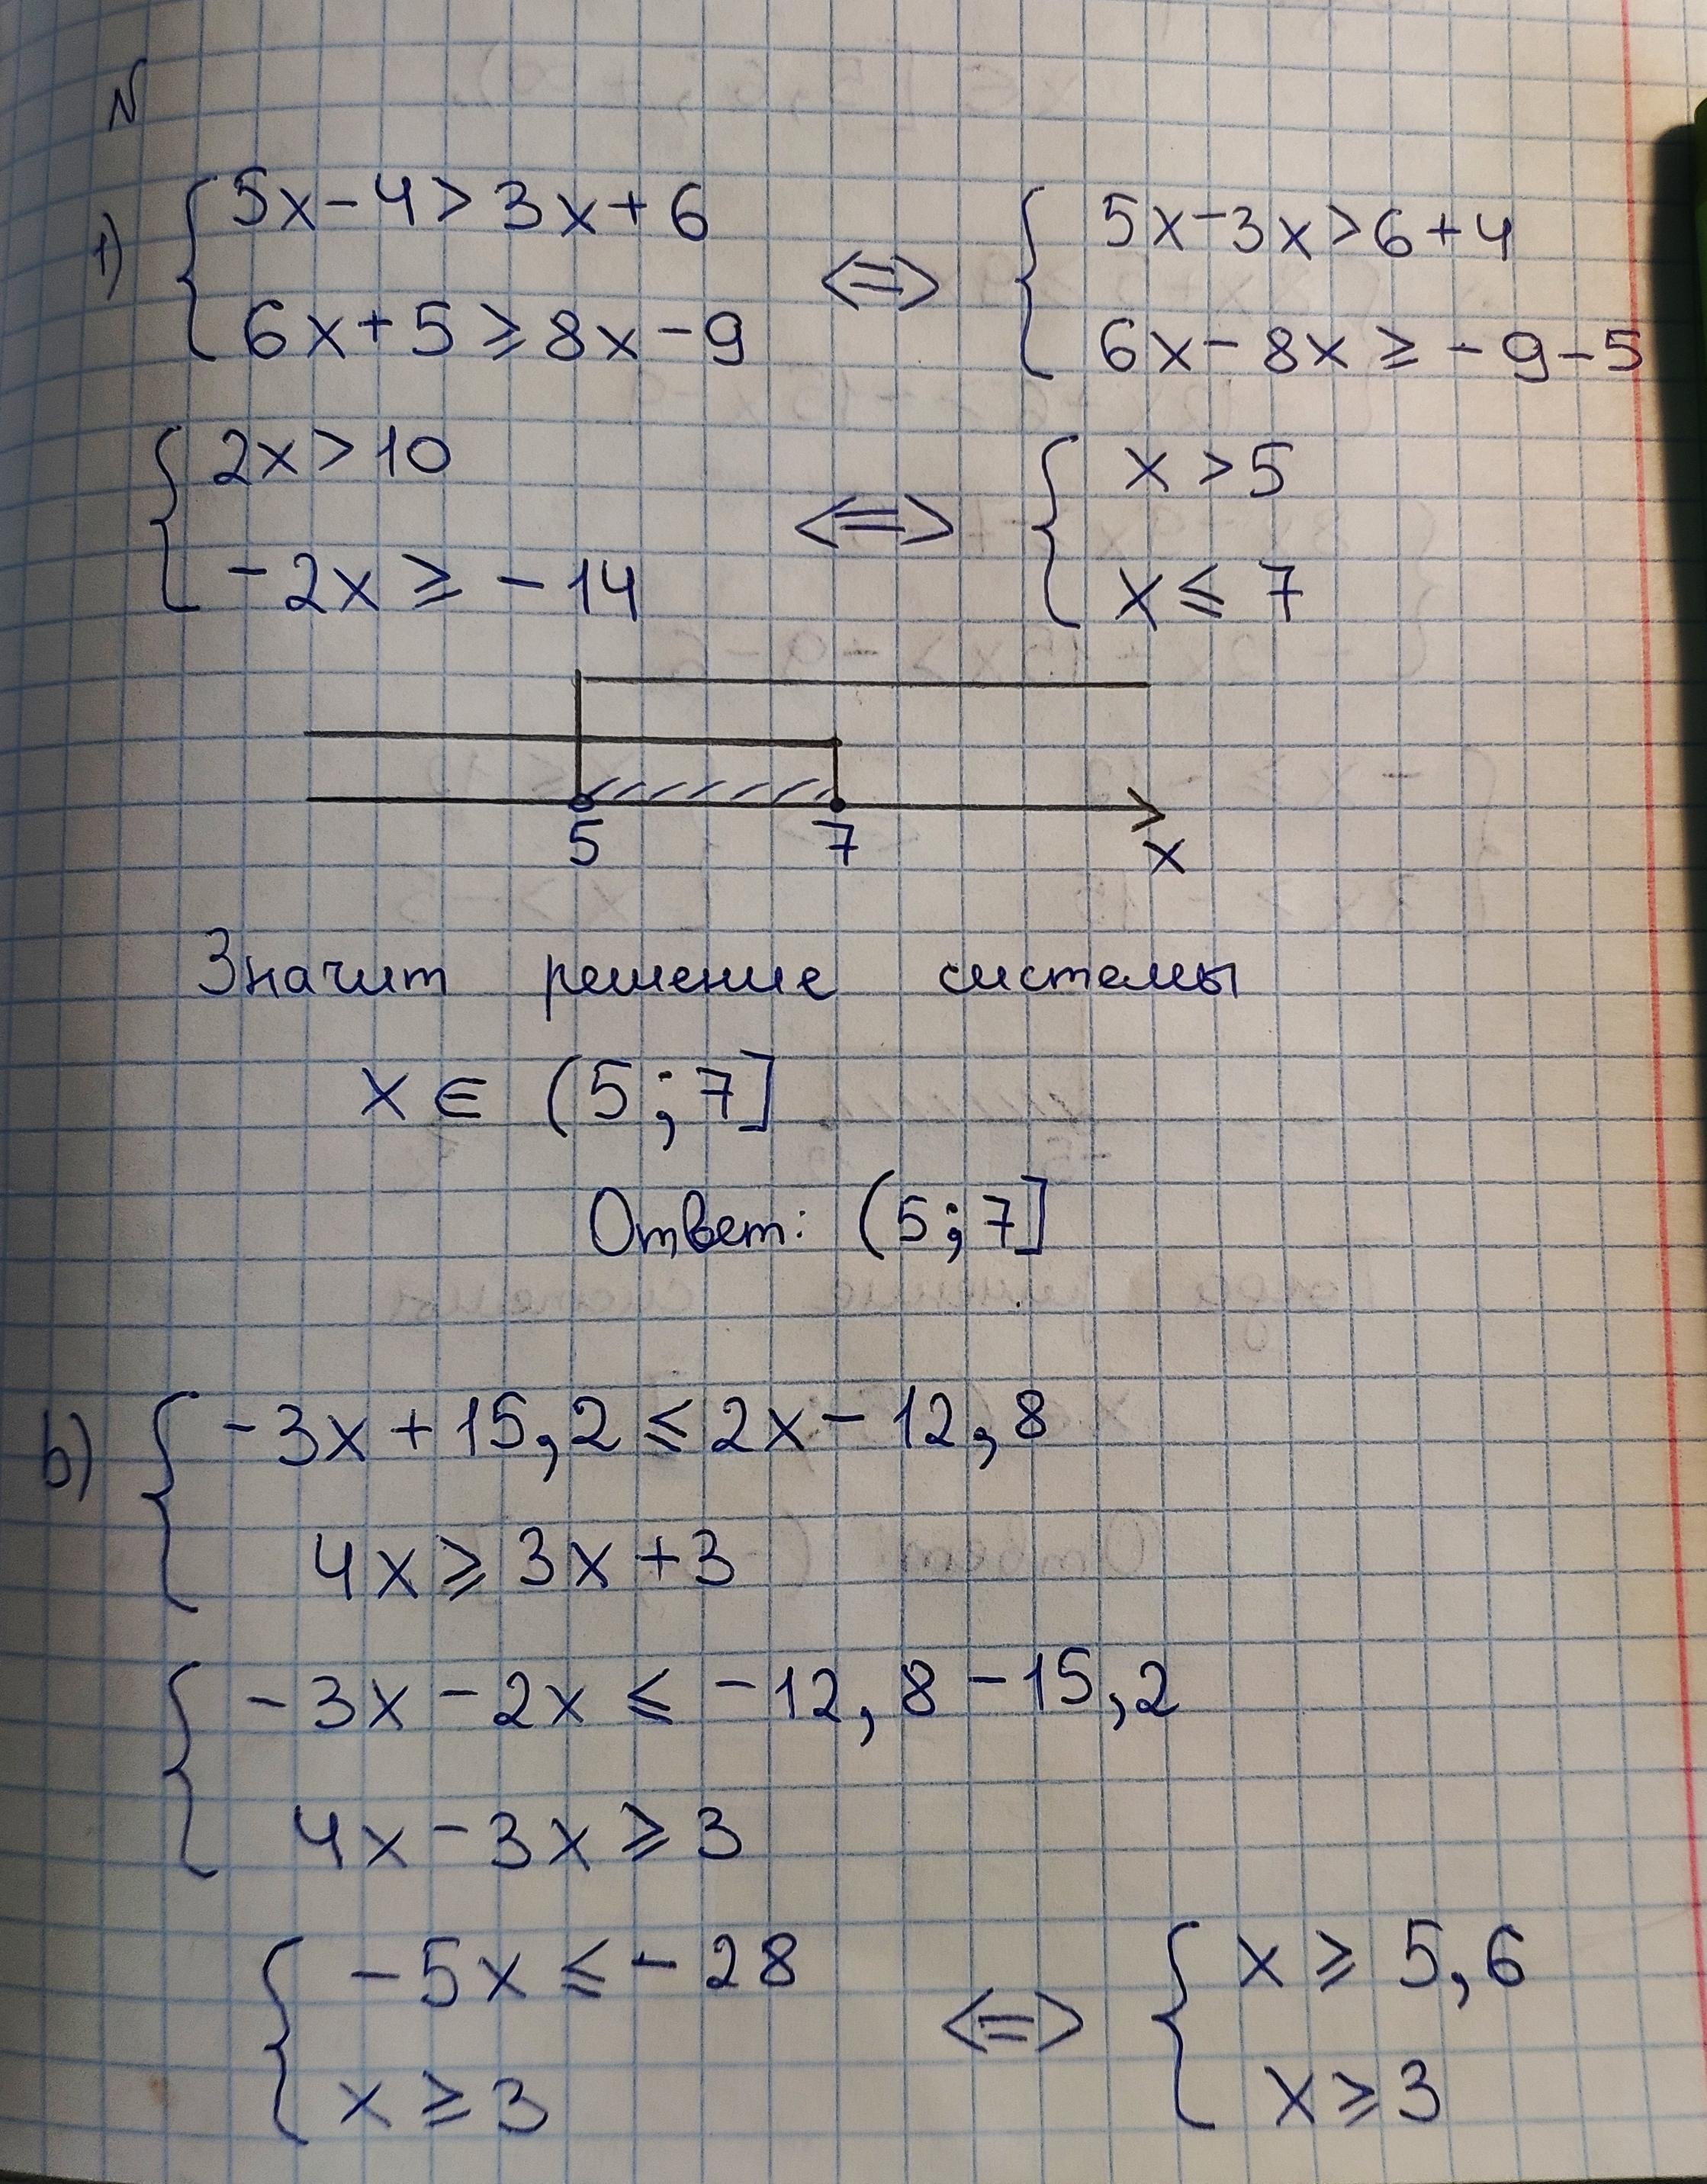 N
1) { 5x-4>3x+6 <=> { 5x-3x>6+4
6x+5≥8x-9 6x-8x≥-9-5
{ 2x>10 <=> { x>5
-2x≥-14 x≤7
5 7 x
Значит решение системы
x∈(5;7]
Ответ: (5;7]
b) { -3x+15,2≤2x-12,8
4x≥3x+3
{ -3x-2x≤-12,8-15,2
4x-3x≥3
{ -5x≤-28 <=> { x≥5,6
x≥3 x≥3